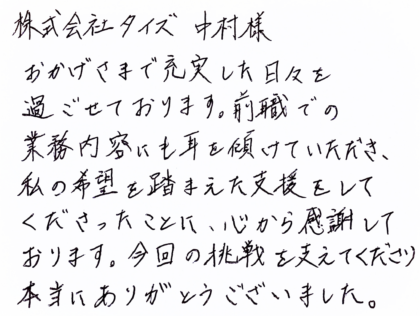 株式会社タイズ 中村様
おかげさまで充実した日々を
過ごせております。前職での
業務内容にも耳を傾けていただき、
私の希望を踏まえた支援をして
くださったことに、心から感謝して
おります。今回の挑戦を支えてくださり
本当にありがとうございました。